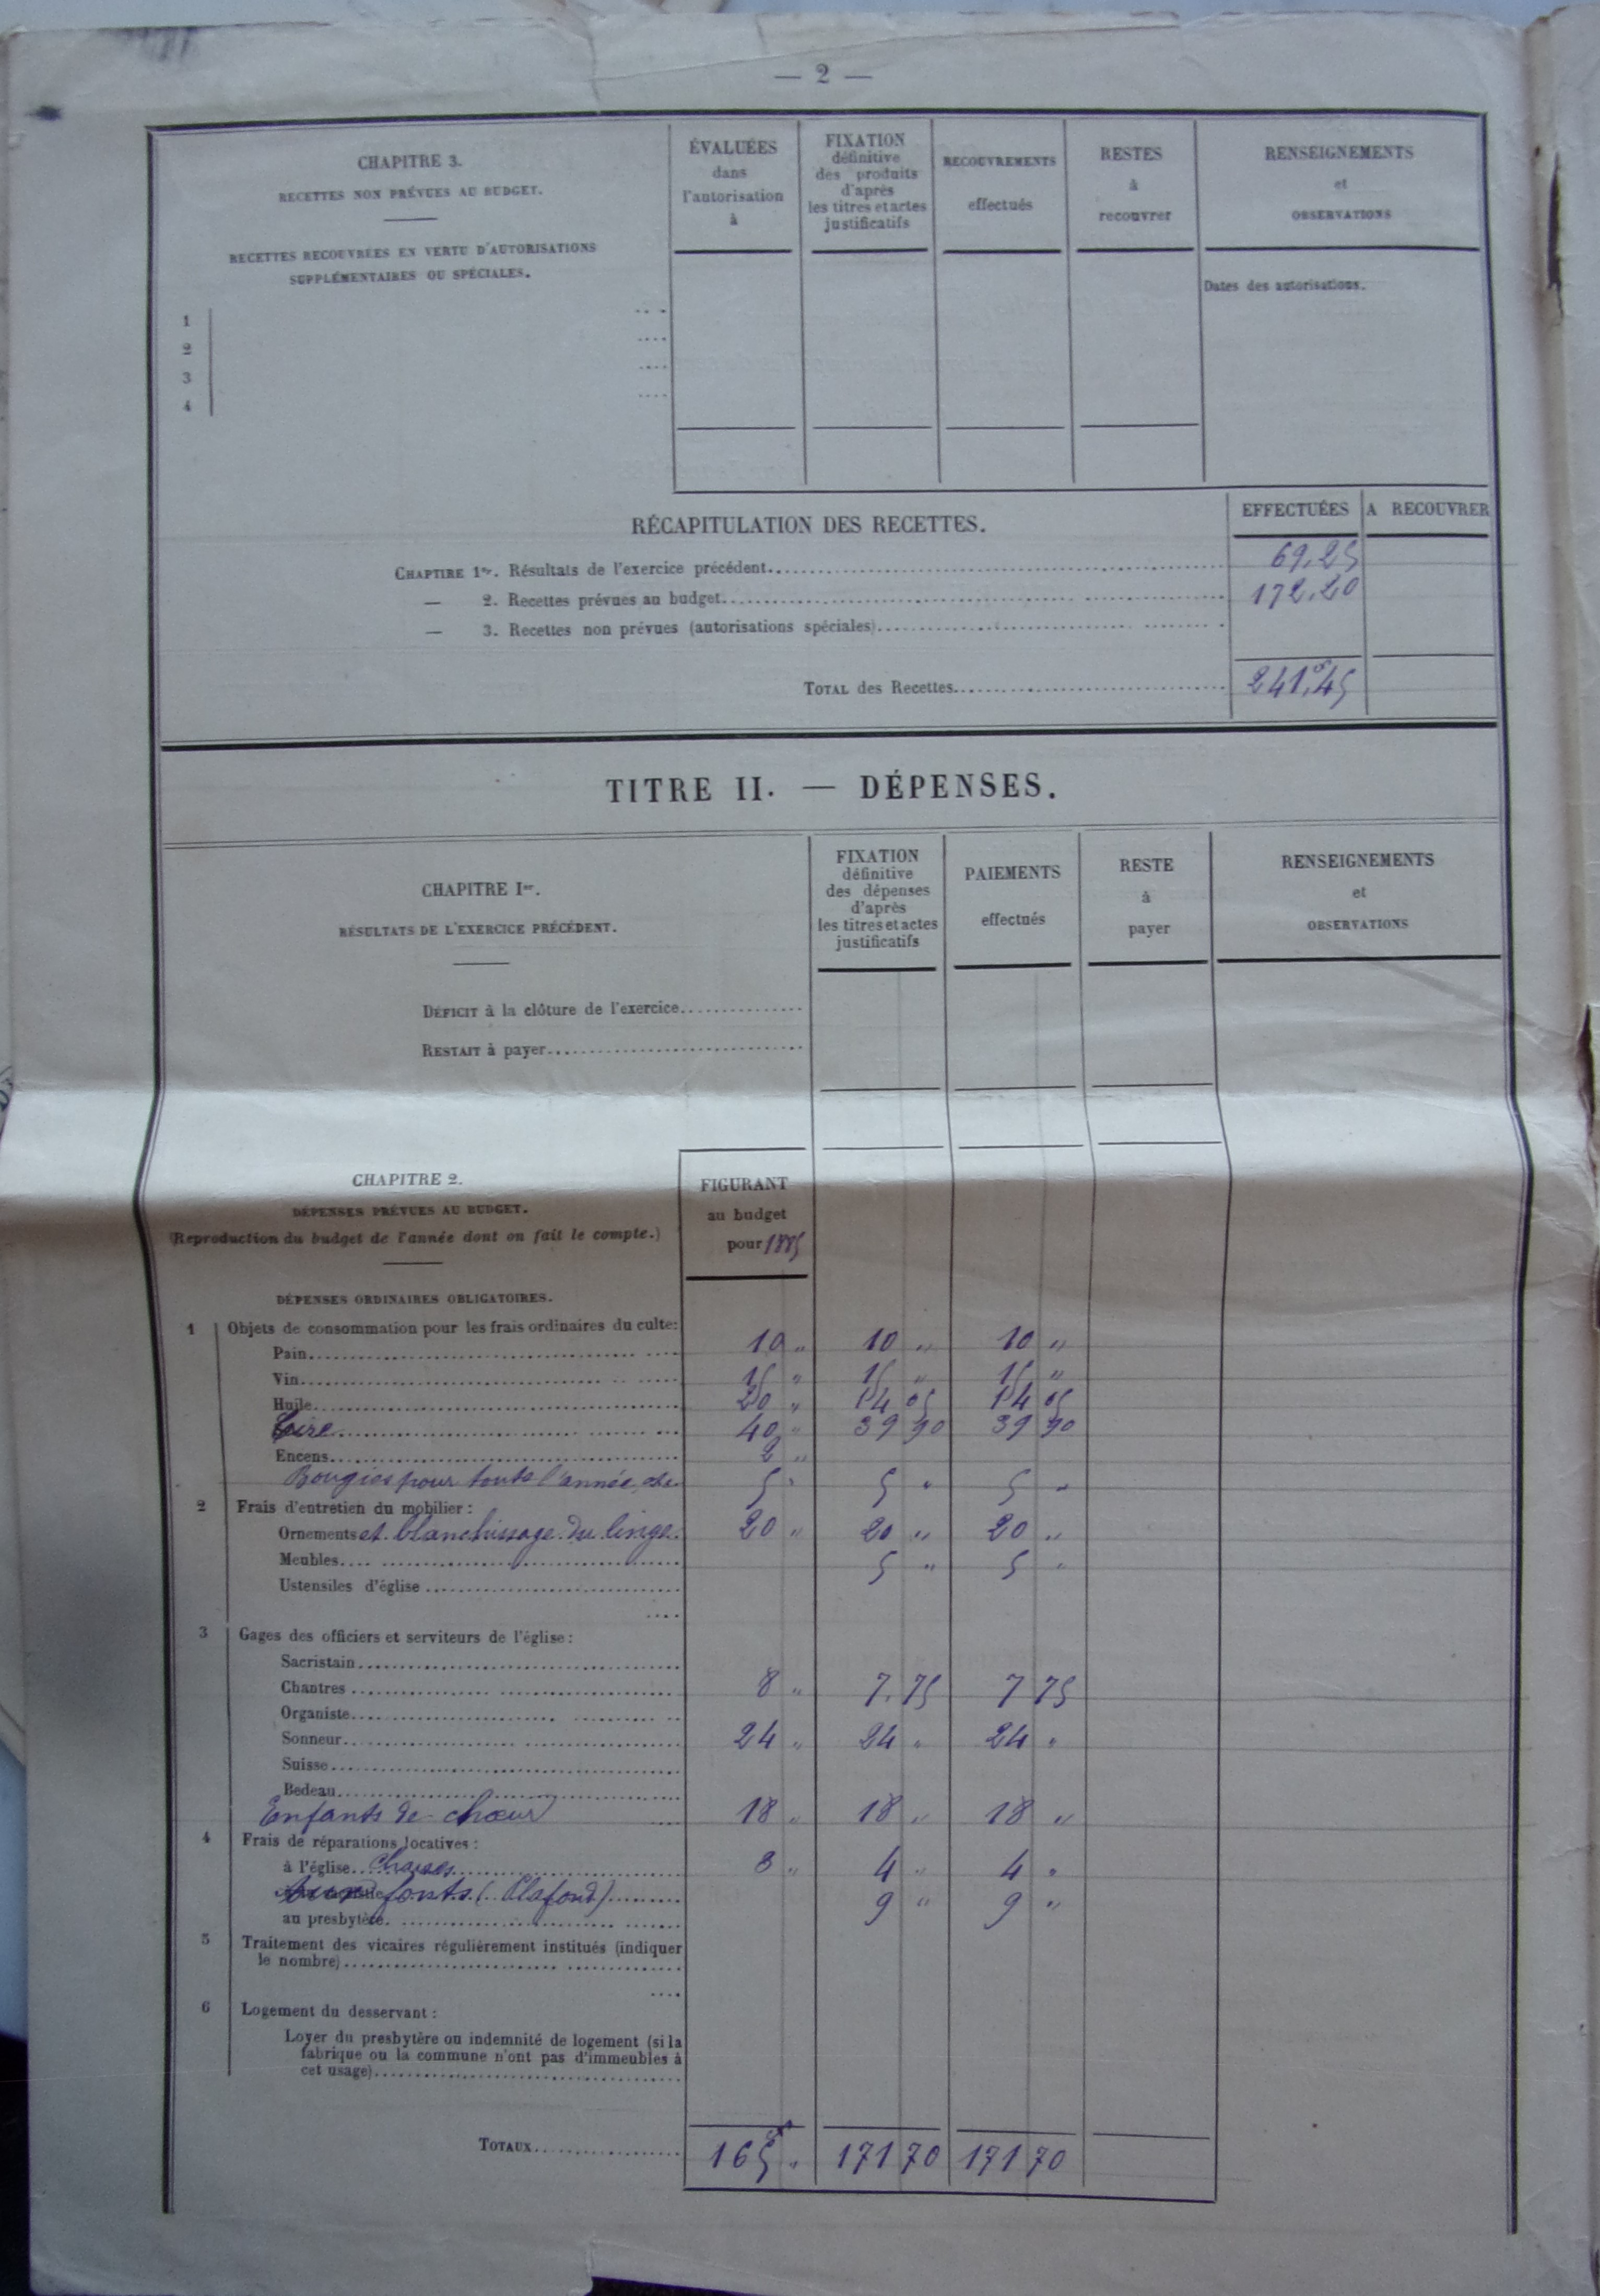 — 2 —
CHAPITRE 3.
RECETTES NON PRÉVUES AU BUDGET.
RECETTES RECOUVRÉES EN VERTU D'AUTORISATIONS
SUPPLÉMENTAIRES OU SPÉCIALES.
ÉVALUÉES
dans
l'autorisation
à
FIXATION
définitive
des produits
d'après
les titres et actes
justificatifs
RECOUVREMENTS
effectués
RESTES
à
recouvrer
RENSEIGNEMENTS
et
OBSERVATIONS
Dates des autorisations.
1
2
3
4
RÉCAPITULATION DES RECETTES.
EFFECTUÉES
A RECOUVRER
CHAPTIRE 1er. Résultats de l'exercice précédent 69,25
— 2. Recettes prévues au budget 172,20
— 3. Recettes non prévues (autorisations spéciales)
TOTAL des Recettes 241f,45
TITRE II. — DÉPENSES.
CHAPITRE Ier.
RÉSULTATS DE L'EXERCICE PRÉCÉDENT.
FIXATION
définitive
des dépenses
d'après
les titres et actes
justificatifs
PAIEMENTS
effectués
RESTE
à
payer
RENSEIGNEMENTS
et
OBSERVATIONS
DÉFICIT à la clôture de l'exercice
RESTAIT à payer
CHAPITRE 2.
DÉPENSES PRÉVUES AU BUDGET.
(Reproduction du budget de l'année dont on fait le compte.)
FIGURANT
au budget
pour 1885
DÉPENSES ORDINAIRES OBLIGATOIRES.
1 Objets de consommation pour les frais ordinaires du culte:
Pain 10 " 10 " 10 "
Vin 15 " 15 " 15 "
Huile 20 " 14 05 14 05
Cire 40 " 39 90 39 90
Encens 2 "
Bougies pour toute l'année 5 " 5 " 5 "
2 Frais d'entretien du mobilier :
Ornements et blanchissage du linge 20 " 20 " 20 "
Meubles 5 " 5 "
Ustensiles d'église
3 Gages des officiers et serviteurs de l'église :
Sacristain
Chantres 8 " 7.75 7 75
Organiste
Sonneur 24 " 24 " 24 "
Suisse
Bedeau
Enfants de chœur 18 " 18 " 18 "
4 Frais de réparations locatives :
à l'église Chaises 3 " 4 " 4 "
fonts (Plafond) 9 " 9 "
au presbytère
5 Traitement des vicaires régulièrement institués (indiquer
le nombre)
6 Logement du desservant :
Loyer du presbytère ou indemnité de logement (si la
fabrique ou la commune n'ont pas d'immeubles à
cet usage)
TOTAUX 165 " 171 70 171 70